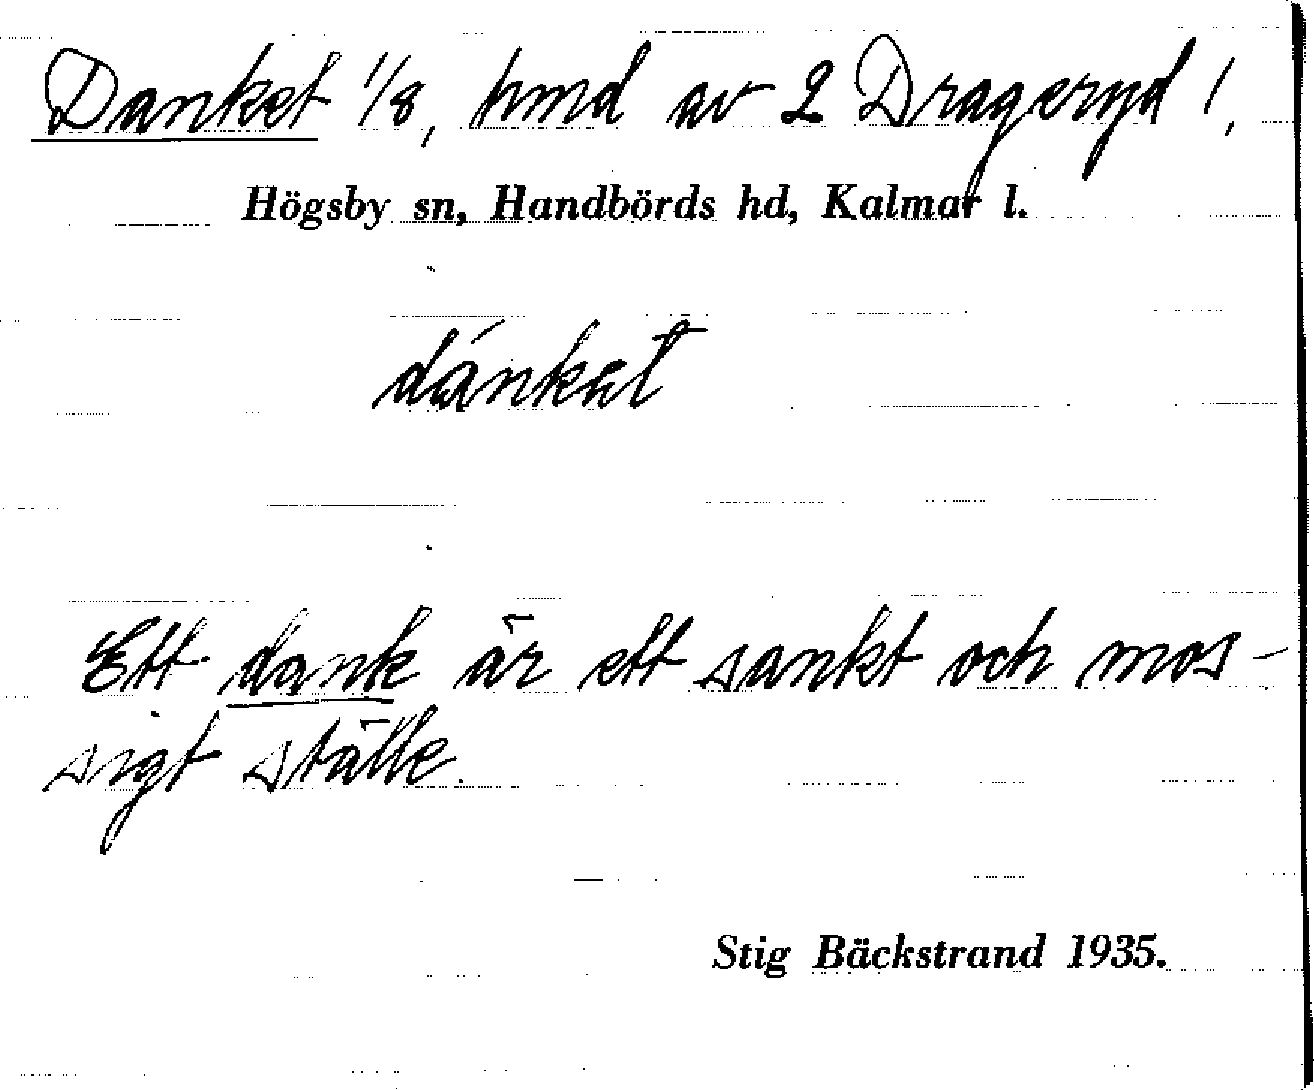 Danket 1/8, hmd av 2 Drageryd 1,
Högsby sn, Handbörds hd, Kalmar l.
dánkət
Ett dank är ett sankt och mos-
sigt ställe.
Stig Bäckstrand 1935.